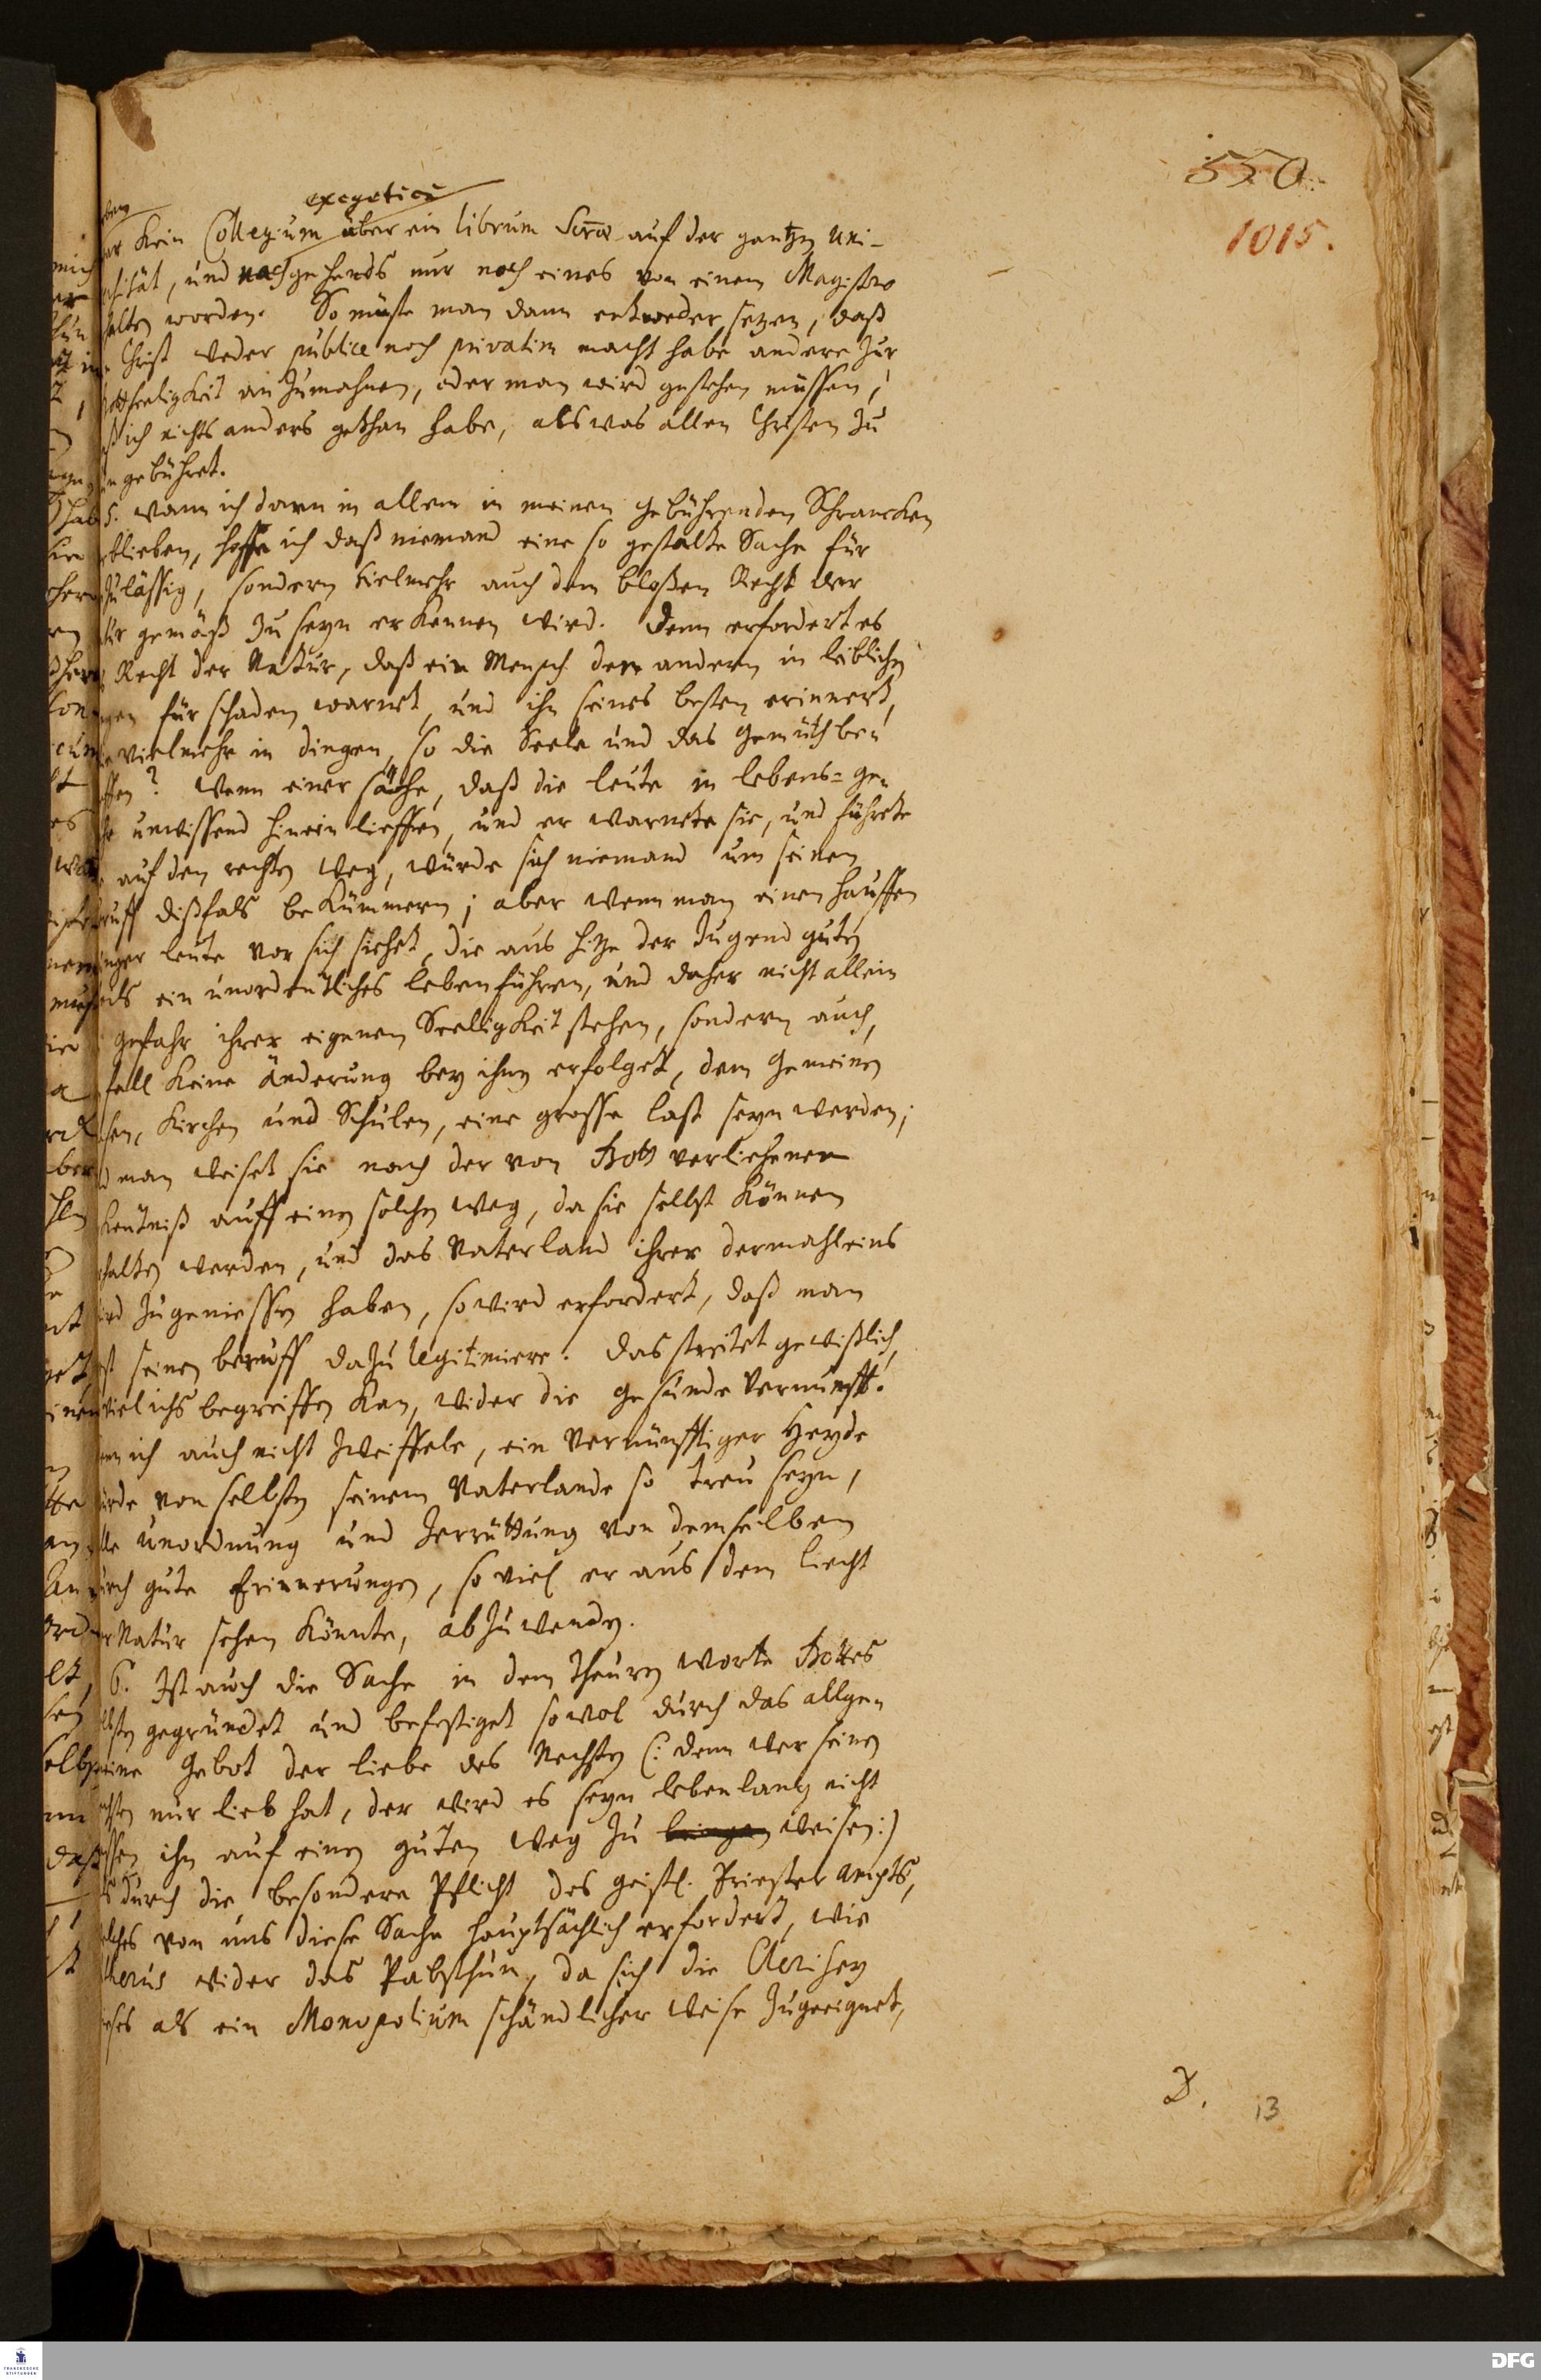 550.
1015.
eben exegeticum
kein Collegium über ein librum Scræ auf der gantzen Uni-
sität, und nachgehends nur noch eines von einem Magistro
halten worden. So müste man dann entweder setzen, daß
Christ weder publice noch privatim macht habe andere zur
ottseeligkeit anzumahnen, oder man wird gestehen müssen,
ß ich nichts anders gethan habe, als was allen Christen zu
un gebühret.
5. Wann ich dann in allem in meinen gebührenden Schrancken
blieben, hoffe ich daß niemand eine so gestalte Sache für
zulässig, sondern vielmehr auch dem bloßen Recht der
tur gemäß zu seyn erkennen wird. Denn erfordert es
Recht der Natur, daß ein Mensch den andern in leiblichen
gen für schaden warnet, und ihn seines besten erinnert,
vielmehr in dingen, so die Seele und das Gemüth be-
ffen? Wenn einer sähe, daß die leute in lebens-ge-
hr unwissend hinein lieffen, und er warnete sie, und führete
auf den rechten Weg, würde sich niemand um seinen
ruff dißfals bekümmern; aber wenn man einen hauffen
nger leute vor sich siehet, die aus hitze der Jugend guten
eils ein unordentliches leben führen, und daher nicht allein
gefahr ihrer eigenen Seeligkeit stehen, sondern auch,
fall keine änderung bey ihnen erfolget, dem Gemeinen
sen, Kirchen und Schulen, eine grosse last seyn werden;
d man weiset sie nach der von Gott verliehenen
kentniß auff einen solchen Weg, da sie selbst können
halten werden, und das Vaterland ihrer dermahleins
zugeniessen haben, so wird erfordert, daß man
st seinen beruff dazu legitimiere. Das streitet gewißlich,
viel ichs begreiffen kan, wider die gesunde Vernunfft.
nn ich auch nicht zweiffele, ein vernünfftiger Heyde
ürde von selbsten seinem Vaterlande so treu seyn,
lle unordnung und Zerrüttung von demselben
urch gute Erinnerungen, so viel er aus dem liecht
er Natur sehen könnte, abzuwenden.
6. Ist auch die Sache in dem theuren worte Gottes
lbsten gegründet und befestiget sowol durch das allge-
eine Gebot der liebe des Nechsten (: denn wer seinen
chsten nur lieb hat, der wird es seyn lebenlang nicht
ssen ihn auf einen guten Weg zu bringen weisen:)
s durch die besondere Pflicht des geistl. Priesterampts,
elches von uns diese Sache hauptsächlich erfordert, wie
therus wider das Pabsthum, da sich die Clerisey
ieses als ein Monopolium schändlicher weise zugeeignet,
D. 13
FRANCKESCHE
STIFTUNGEN
DFG